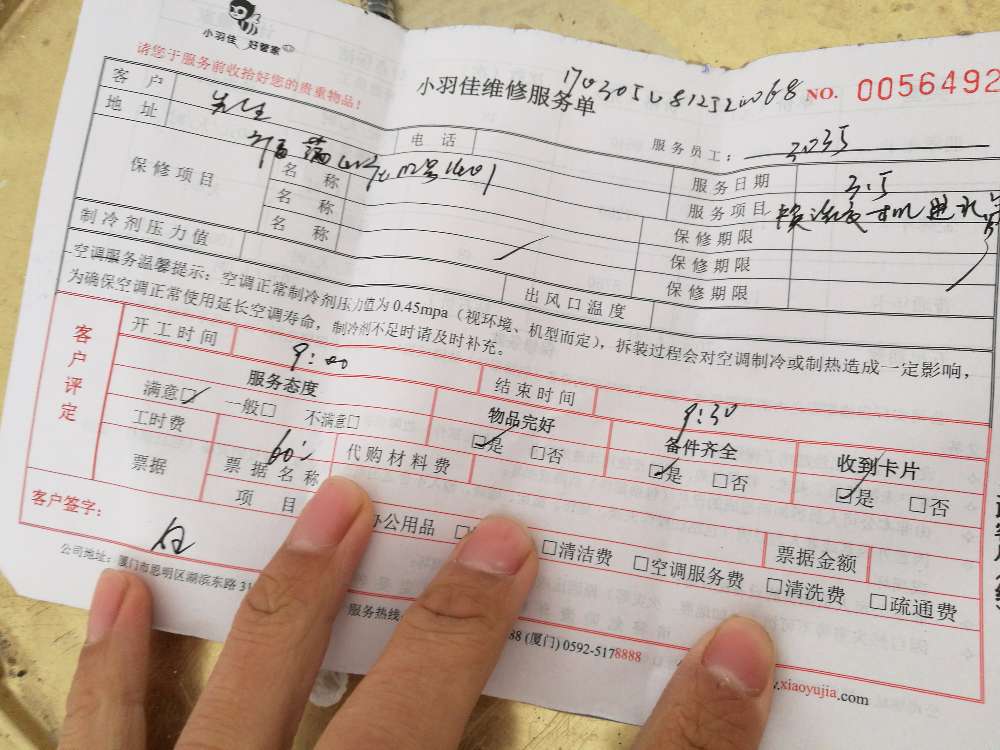 小羽佳 好管家
请您于服务前收拾好您的贵重物品！
小羽佳维修服务单
NO. 0056492
客户 先生 电话 服务员工：
地址 服务日期 3.5
保修项目 名称 服务项目
名称 保修期限
名称 保修期限
保修期限
制冷剂压力值 出风口温度
空调服务温馨提示：空调正常制冷剂压力值为 0.45mpa（视环境、机型而定），拆装过程会对空调制冷或制热造成一定影响，
为确保空调正常使用延长空调寿命，制冷剂不足时请及时补充。
客户评定
开工时间 9:00 结束时间 9:30
服务态度 物品完好 备件齐全 收到卡片
满意☑ 一般□ 不满意□ ☑是 □否 ☑是 □否 ☑是 □否
工时费 60 代购材料费
票据 票据名称 票据金额
项目 办公用品 □清洁费 □空调服务费 □清洗费 □疏通费
客户签字：
公司地址：厦门市思明区湖滨东路 31
服务热线 88 (厦门) 0592-5178888
.xiaoyujia.com